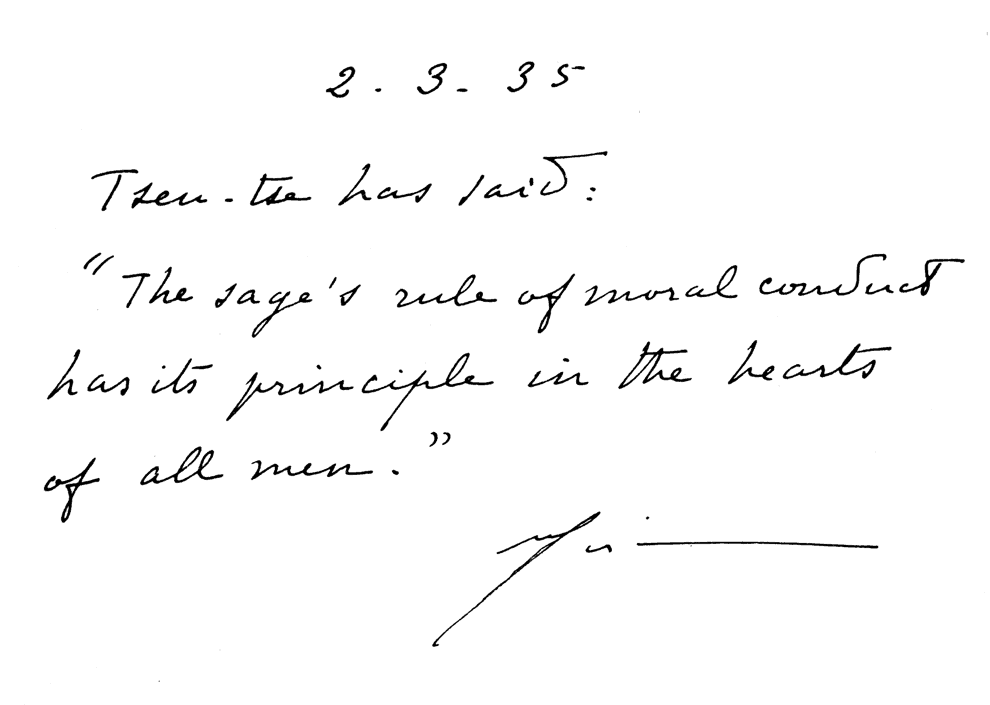 2.3.35
Tsen-tse has said:
"The sage's rule of moral conduct
has its principle in the hearts
of all men."